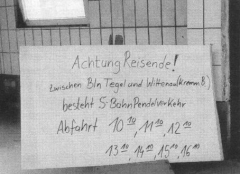 Achtung Reisende!
zwischen Bln Tegel und Wittenau(Kremm.B)
besteht S-Bahn Pendelverkehr
Abfahrt 10¹⁰, 11¹⁰, 12¹⁰
13¹⁰ 14¹⁰ 15¹⁰, 16¹⁰